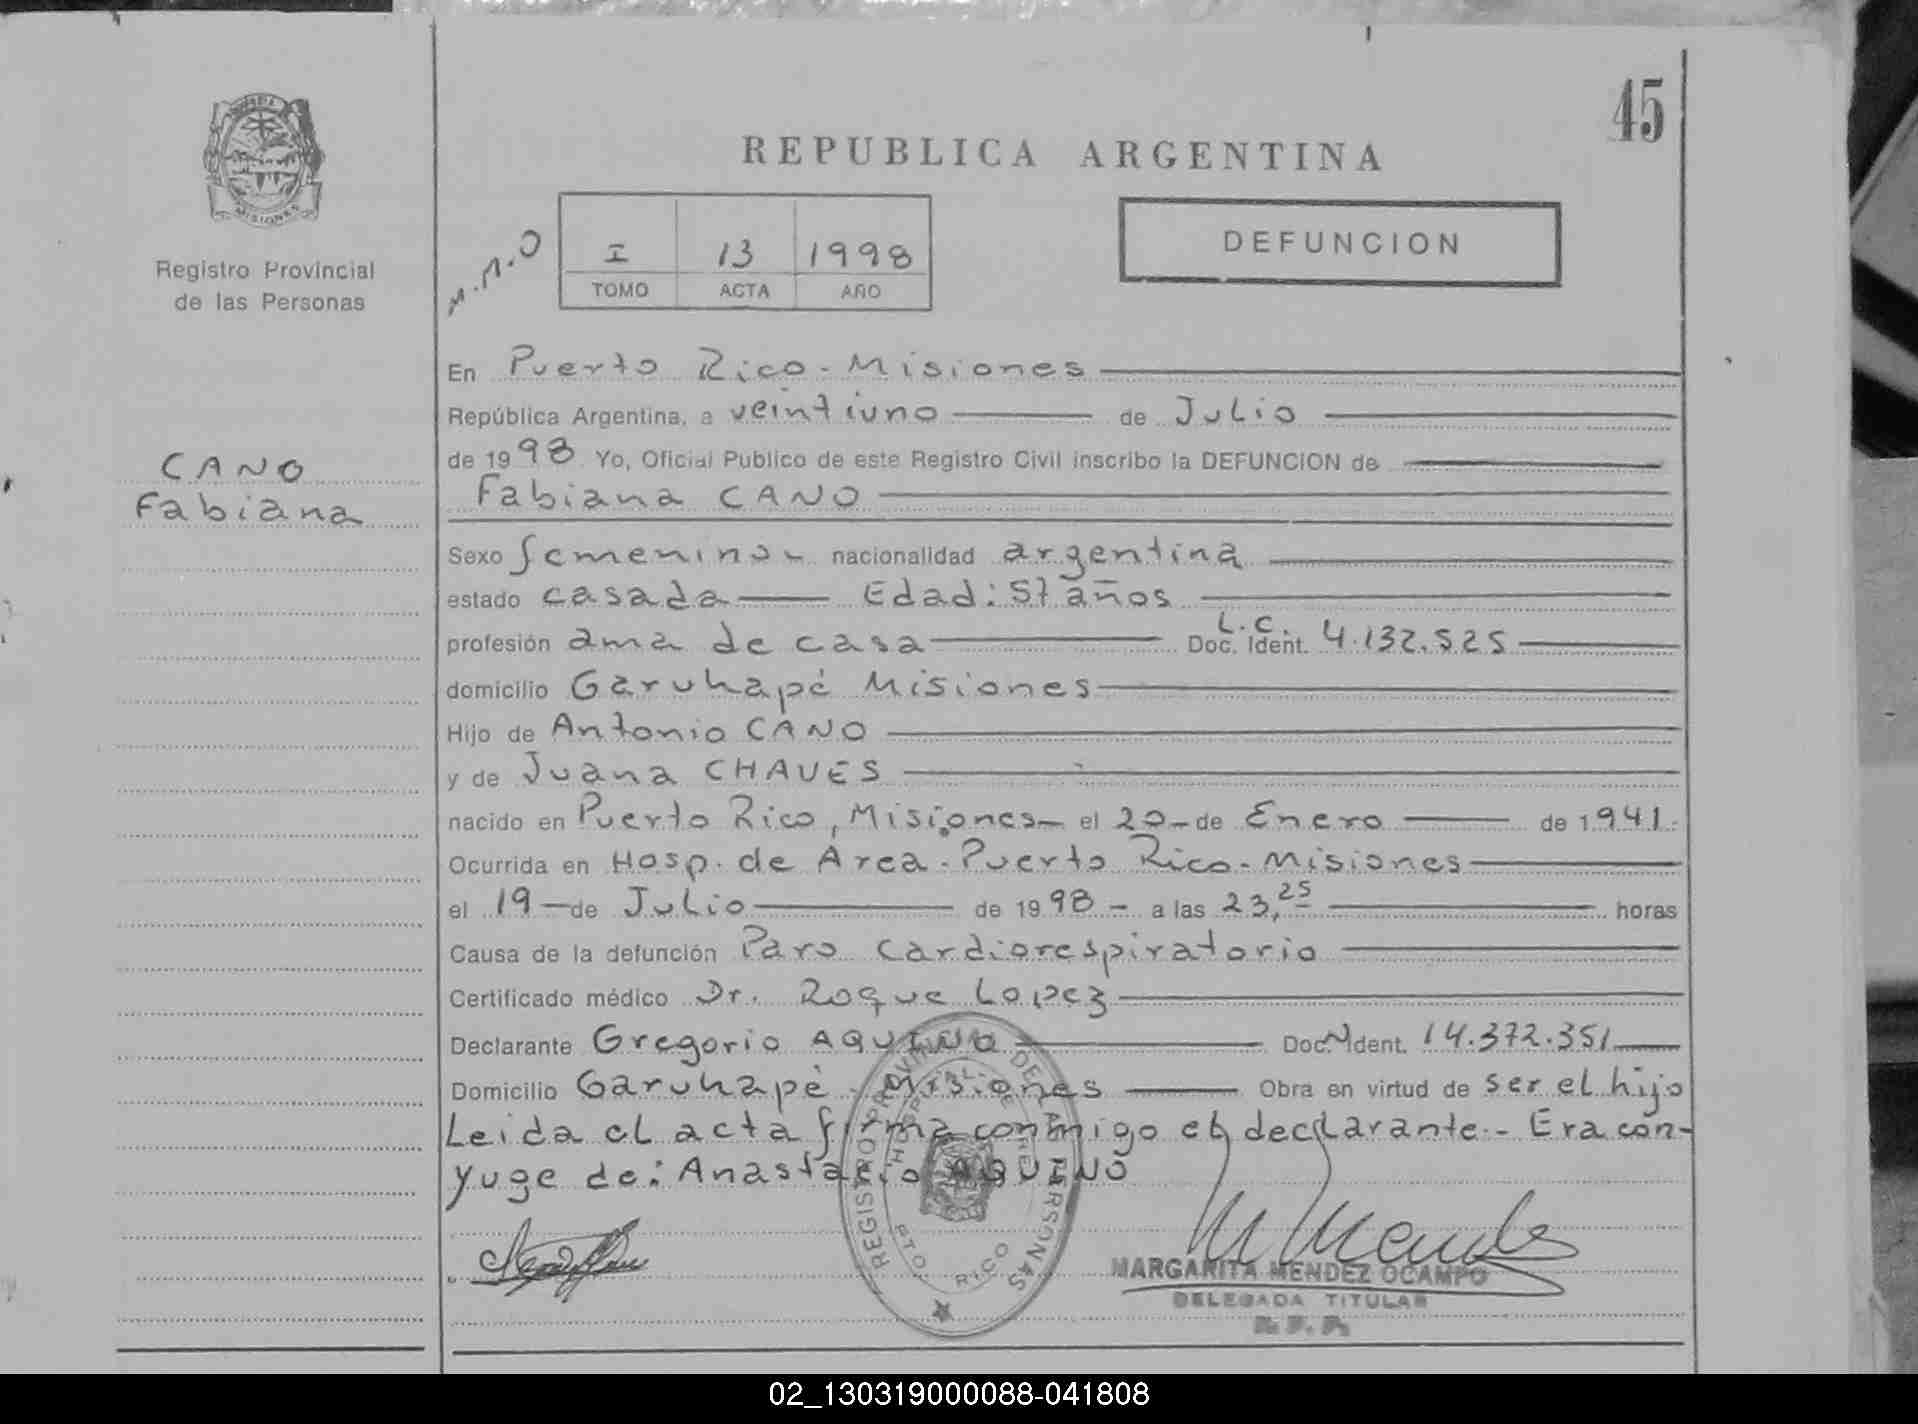 45
MISIONES
Registro Provincial
de las Personas
CANO
Fabiana
REPUBLICA ARGENTINA
M.M.O
I 13 1998
TOMO ACTA AÑO
DEFUNCION
En Puerto Rico - Misiones
República Argentina, a veintiuno de Julio
de 1998 Yo, Oficial Publico de este Registro Civil inscribo la DEFUNCION de
Fabiana CANO
Sexo femenino - nacionalidad argentina
estado casada Edad: 57 años
L.C.
profesión ama de casa Doc. Ident. 4.132.525
domicilio Garuhapé Misiones
Hijo de Antonio CANO
y de Juana CHAVES
nacido en Puerto Rico, Misiones - el 20 - de Enero de 1941.
Ocurrida en Hosp. de Area - Puerto Rico - Misiones
el 19 - de Julio de 1998 - a las 23,25 horas
Causa de la defunción Paro cardiorespiratorio
Certificado médico Dr. Roque Lopez
Declarante Gregorio AQUINO Doc. Ident. 14.372.351
Domicilio Garuhapé - Misiones Obra en virtud de ser el hijo
Leida el acta firma conmigo el declarante - Era con-
yuge de: Anastacio AQUINO
REGISTRO PROVINCIAL DE LAS PERSONAS
PTO. RICO
MARGARITA MENDEZ OCAMPO
DELEGADA TITULAR
R. P. P.
02_130319000088-041808